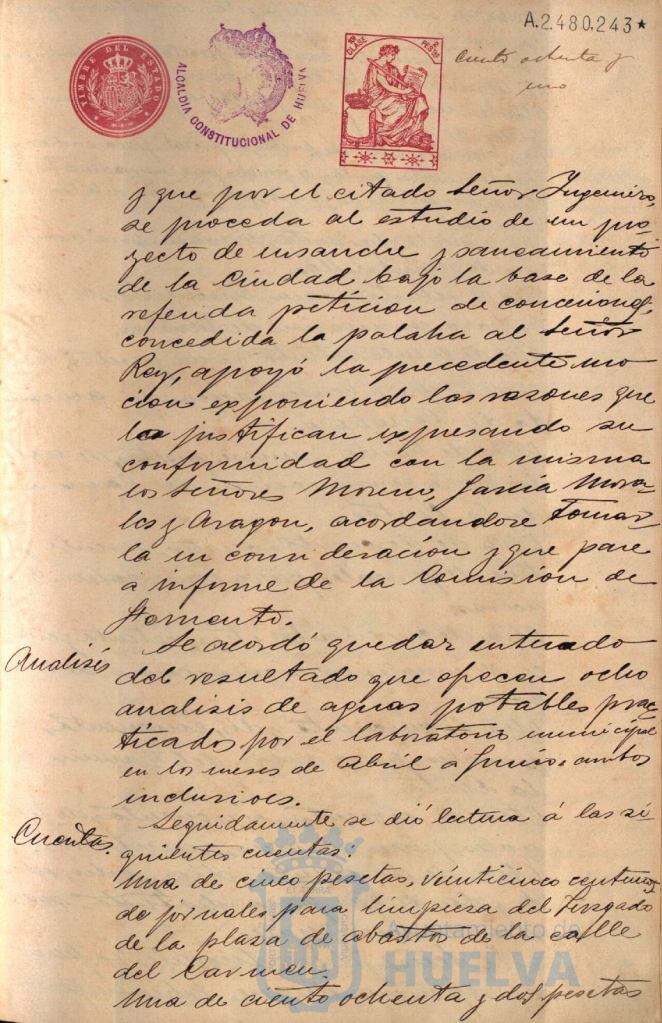 A.2.480.243★
TIMBRE DEL ESTADO
ALCALDIA CONSTITUCIONAL DE HUELVA
10ª CLASE 2 PESTAS
Ciento ochenta y
uno
y que por el citado Señor Ingeniero,
se proceda al estudio de un pro-
yecto de ensanche y saneamiento
de la Ciudad bajo la base de la
referida peticion de concesiones,
concedida la palaba al Señor
Rey, apoyó la precedente mo
cion exponiendo las razones que
la justifican expresando su
conformidad con la misma
los Señores Moreno, Garcia Mora-
les y Aragon, acordandose tomar
la en consideracion y que pase
a informe de la Comision de
Fomento.
Analisis
Se acordó quedar enterado
del resultado que ofrecen ocho
analisis de aguas potables prac-
ticados por el laboratorio municipal
en los meses de Abril á Junio ambos
inclusives.
Cuentas.
Seguidamente se dió lectura á las si-
guientes cuentas:
Una de cinco pesetas, veinticinco centimos
de jornales para limpieza del Juzgado
de la plaza de abastos de la calle
del Carmen.
Una de ciento ochenta y dos pesetas
Ayuntamiento de
HUELVA